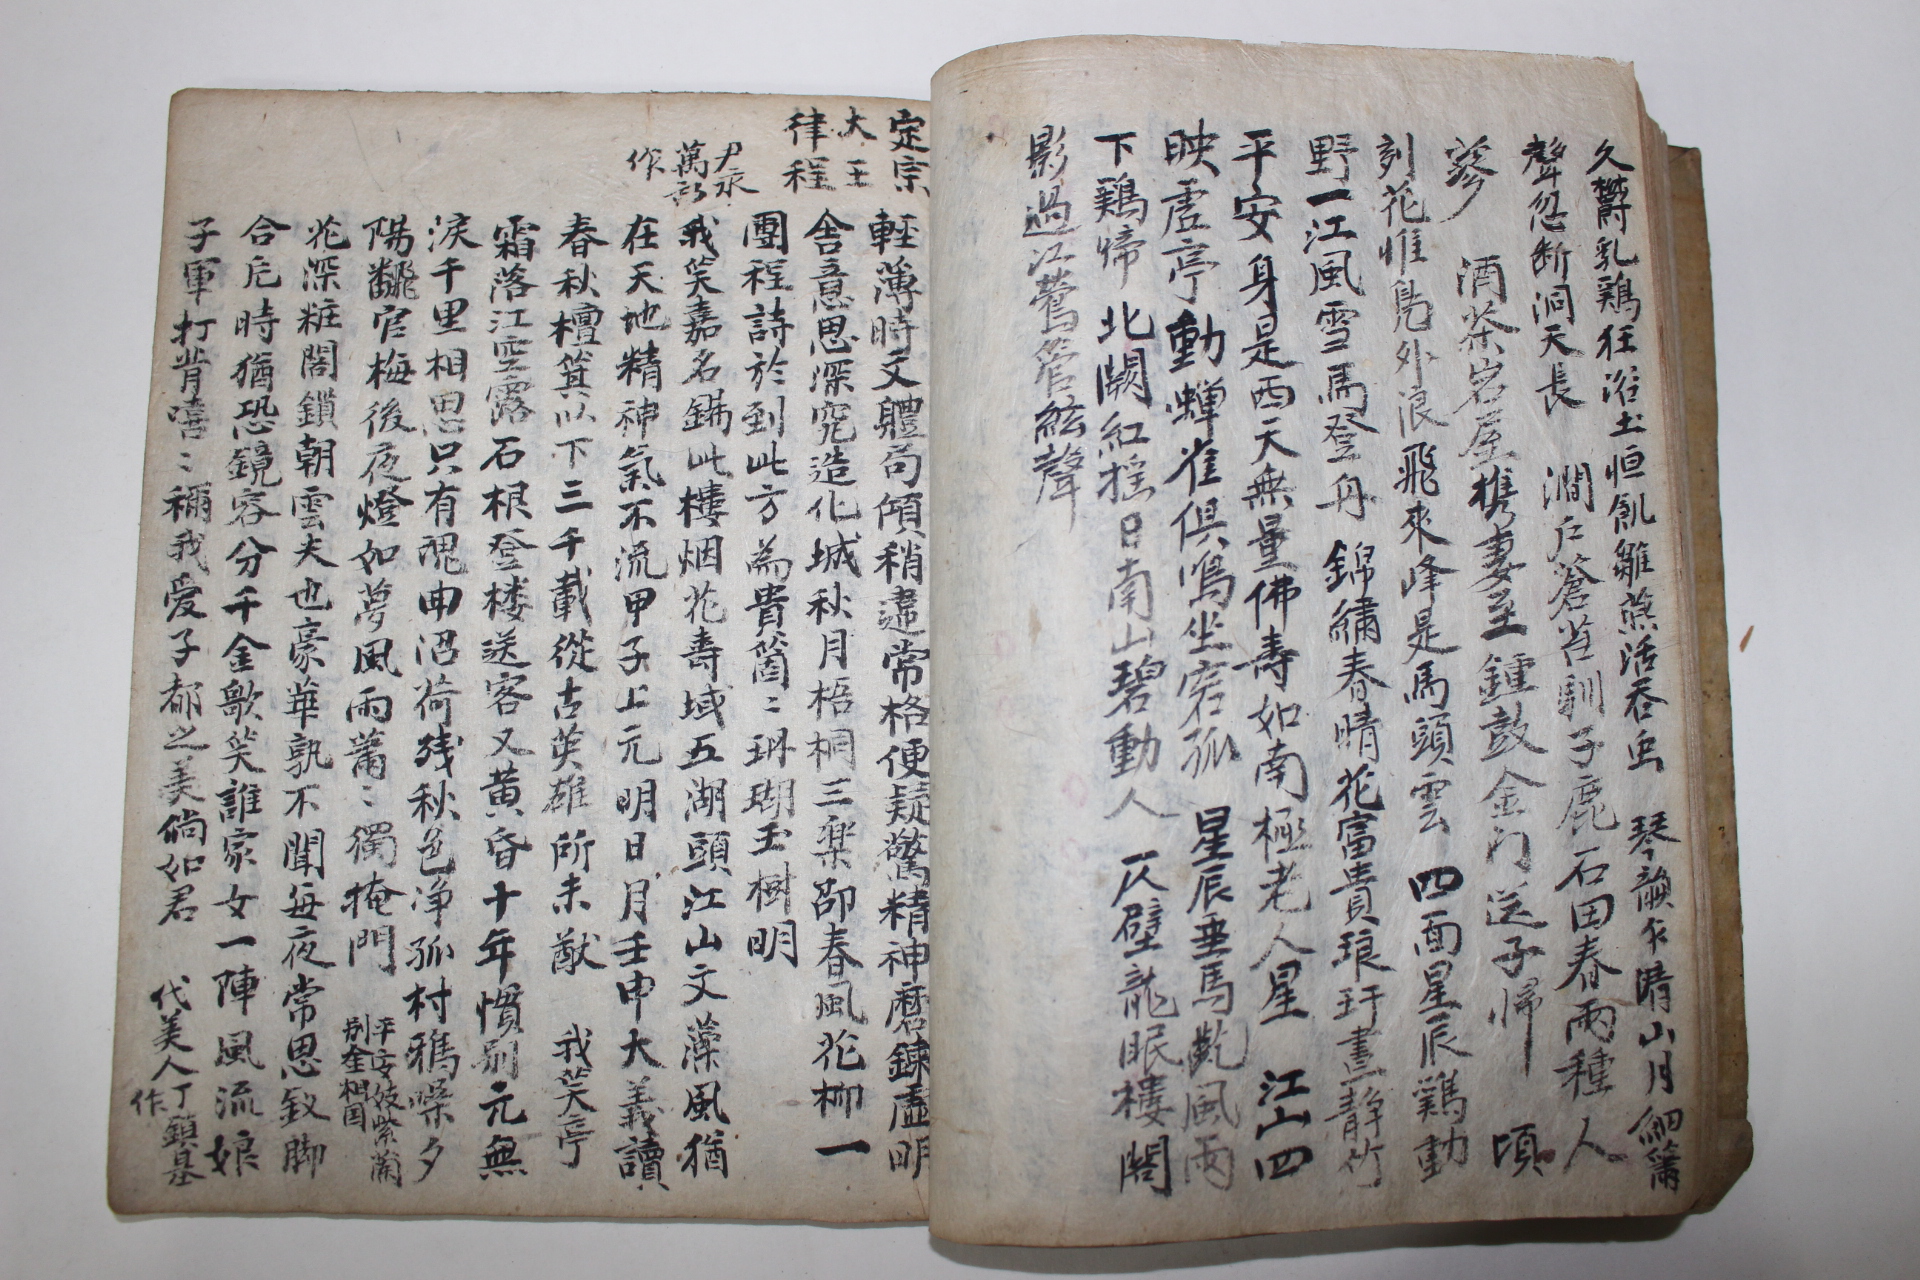 久欝乳鷄狂浴土恒飢雛燕活吞虫 琴韻 晴山月 細簫
聲忽断洞天長 澗戶蒼苔馴子鹿石田春雨種人
蔘 酒茶岩屋携妻至鍾鼓金門送子歸 頃
刻花惟鳧外浪飛來峰是馬頭雲 四面星辰鷄動
野一江風雪馬登舟 錦繡春晴花富貴琅玕晝靜竹
平安身是西天無量佛壽如南極老人星 江山四
映虛亭動蟬雀俱鳴坐宕孤 星辰垂馬 風雨
下鷄啼 北闕紅搖日南山碧動人 仄壁龍眠樓閣
影過江鶯管絃聲
定宗
大王
律程
輕薄時文體局傾稍違常格便疑驚精神磨鍊虛明
舍意思深究造化城秋月梧桐三樂邵春風花柳一
團程詩於到此方為貴箇〻珊瑚玉樹明
尹永
萬
作
我笑嘉名錫此樓烟花壽域五湖頭江山文藻風猶
在天地精神氣不流甲子上元明日月壬申大義讀
春秋檀箕以下三千載從古英雄所未猷 我笑亭
霜落江空露石根登楼送客又黃昏十年慣別元無
淚千里相思只有魂曲沼荷残秋色净孤村鴉噪夕
陽飜官梅後夜燈如夢風雨蕭〻獨掩門 平安妓紫蘭
別金相国
花深粧閣鎖朝雲夫也豪華孰不聞每夜常思釵脚
合卮時猶恐鏡容分千金歌笑誰家女一陣風流娘
子軍打背嘻〻稱我愛子都之美倘如君 代美人丁鎮基
作